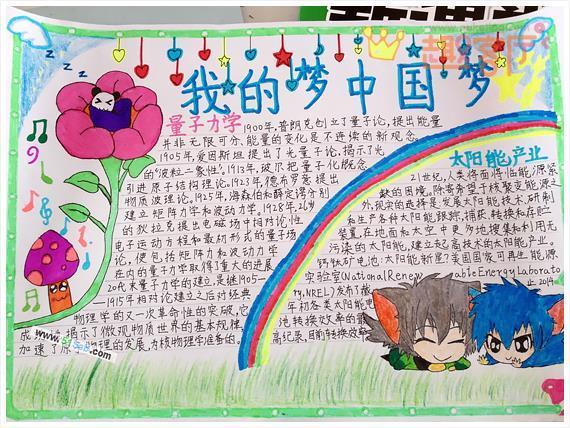 我的梦中国梦
量子力学
1900年,普朗克创立了量子论,提出能量
并非无限可分,能量的变化是不连续的新观念。
1905年,爱因斯坦提出了光量子论,揭示了光
的“波粒二象性”,1913年,玻尔把量子化概念
引进原子结构理论。1923年,德布罗意提出
物质波理论。1925年,海森伯和薛定谔分别
建立矩阵力学和波动力学。1928年,26岁
的狄拉克提出电磁场中相对论性
电子运动方程和最初形式的量子场
论,使包括矩阵力学和波动力学
在内的量子力学取得了重大的进展。
20代末量子力学的建立,是继1905—
—1915年相对论建立之后对经典
物理学的又一次革命性的突破,它
成 揭示了微观物质世界的基本规律,
加速了原 物理的发展,为核物理学准备的。
太阳能产业
21世纪,人类将面临能源紧
缺的困境。除寄希望于核聚变能源之
外,现实的选择是发展太阳能技术,研制
和生产各种太阳能跟踪、捕获、转换和存贮
装置,在地面和太空中更多地搜集和利用无
污染的太阳能,建立起高技术的太阳能产业。
钙钛矿电池:太阳能新星?美国国家可再生能源
实验室(National Renewable Energy Laborato
ry,NREL)发布了截止2014
年初各类太阳能电
池转换效率的最
高纪录,目前转换效率